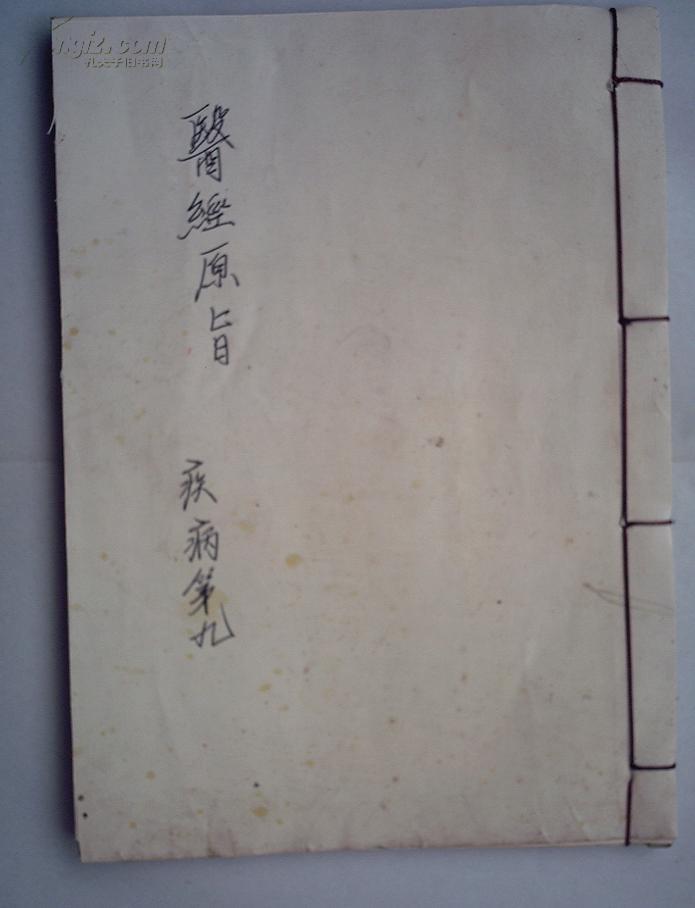 醫經原旨
疾病第九
孔夫子旧书网